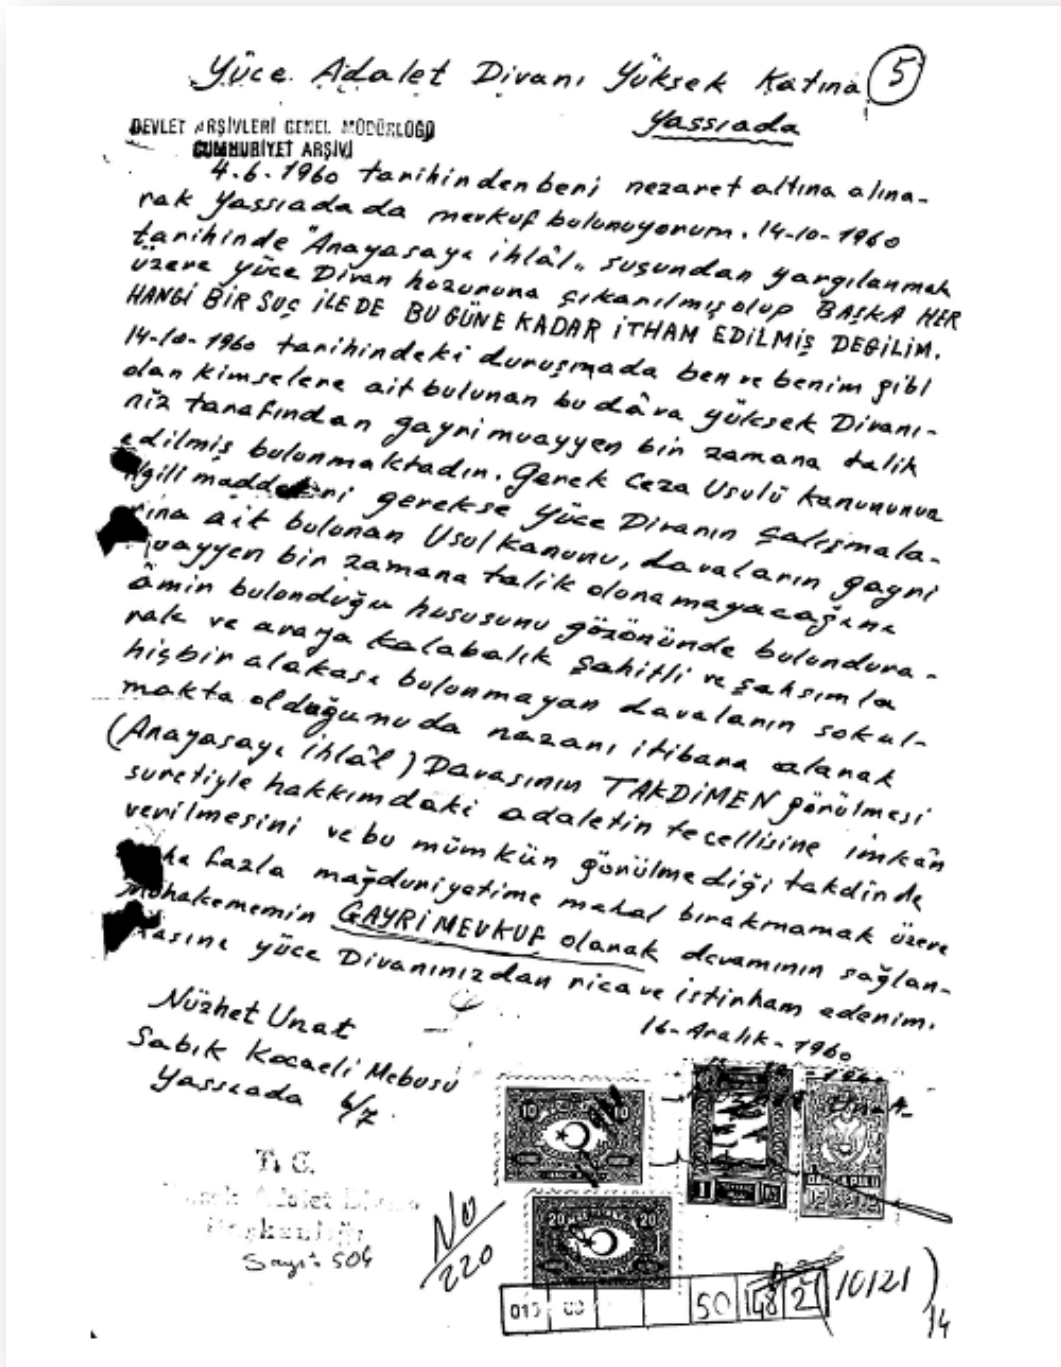 Yüce Adalet Divanı Yüksek Katına
5
Yassıada
DEVLET ARŞİVLERİ GENEL MÜDÜRLÜĞÜ
CUMHURİYET ARŞİVİ
4.6.1960 tarihinden beri nezaret altına alına-
rak Yassıadada mevkuf bulunuyorum. 14-10-1960
tarihinde "Anayasayı ihlâl" suçundan yargılanmak
üzere yüce Divan huzuruna çıkarılmış olup BAŞKA HER
HANGİ BİR SUÇ İLE DE BU GÜNE KADAR İTHAM EDİLMİŞ DEĞİLİM.
14-10-1960 tarihindeki duruşmada ben ve benim gibi
olan kimselere ait bulunan bu dâva yüksek Divanı-
nız tarafından gayri muayyen bir zamana talik
edilmiş bulunmaktadır. Gerek Ceza Usulü kanununun
ilgili maddeleri gerekse Yüce Divanın çalışmala-
rına ait bulunan Usul kanunu, davaların gayri
muayyen bir zamana talik olunamayacağına
âmir bulunduğu hususunu gözönünde bulundura-
rak ve araya kalabalık şahitli ve şahsımla
hiçbir alakası bulunmayan davaların sokul-
makta olduğunu da nazarı itibara alarak
(Anayasayı ihlâl) Davasının TAKDİMEN görülmesi
suretiyle hakkımdaki adaletin tecellisine imkân
verilmesini ve bu mümkün görülmediği takdirde
daha fazla mağduriyetime mahal bırakmamak üzere
Muhakememin GAYRİ MEVKUF olarak devamının sağlan-
masını yüce Divanınızdan rica ve istirham ederim.
16-Aralık-1960
Nüzhet Unat
Sabık Kocaeli Mebusu
Yassıada 6/7
10 10
1
20 20
T. C.
Yüksek Adalet Divanı
Başkanlığı
Sayı: 504
No
220
50 148 21
10121
14